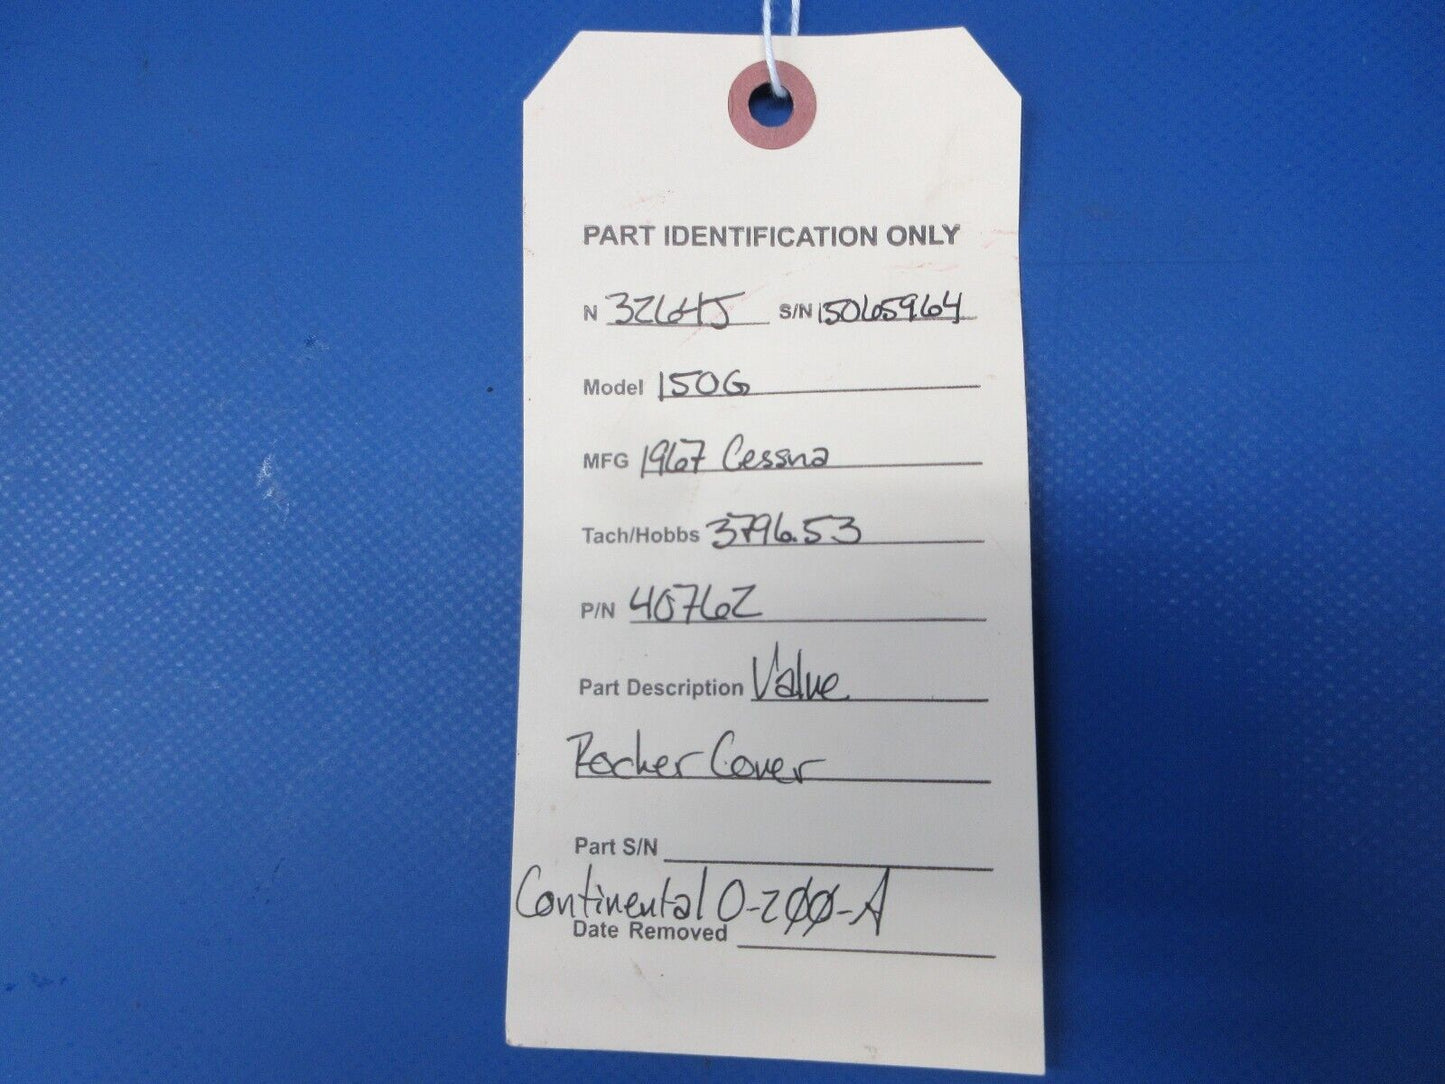 PART IDENTIFICATION ONLY
N 3264J S/N 15065964
Model 150G
MFG 1967 Cessna
Tach/Hobbs 3796.53
P/N 40762
Part Description Valve
Rocker Cover
Part S/N
Continental O-200-A
Date Removed